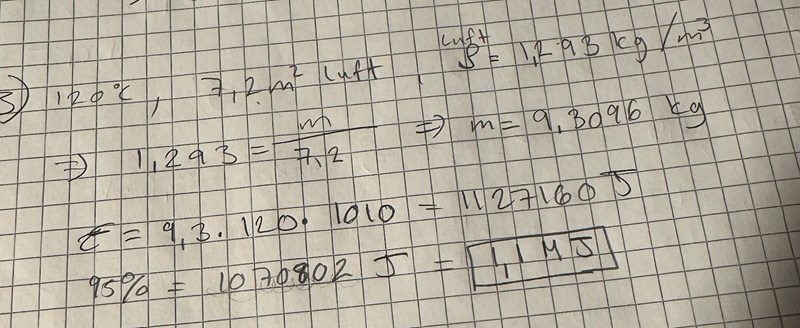 3) 120°C, 7,2 m² luft, luft ρ = 1,293 kg/m³
⇒ 1,293 = m / 7,2 ⇒ m = 9,3096 kg
E = 9,3 · 120 · 1010 = 1127160 J
95% = 1070802 J = 1,1 MJ